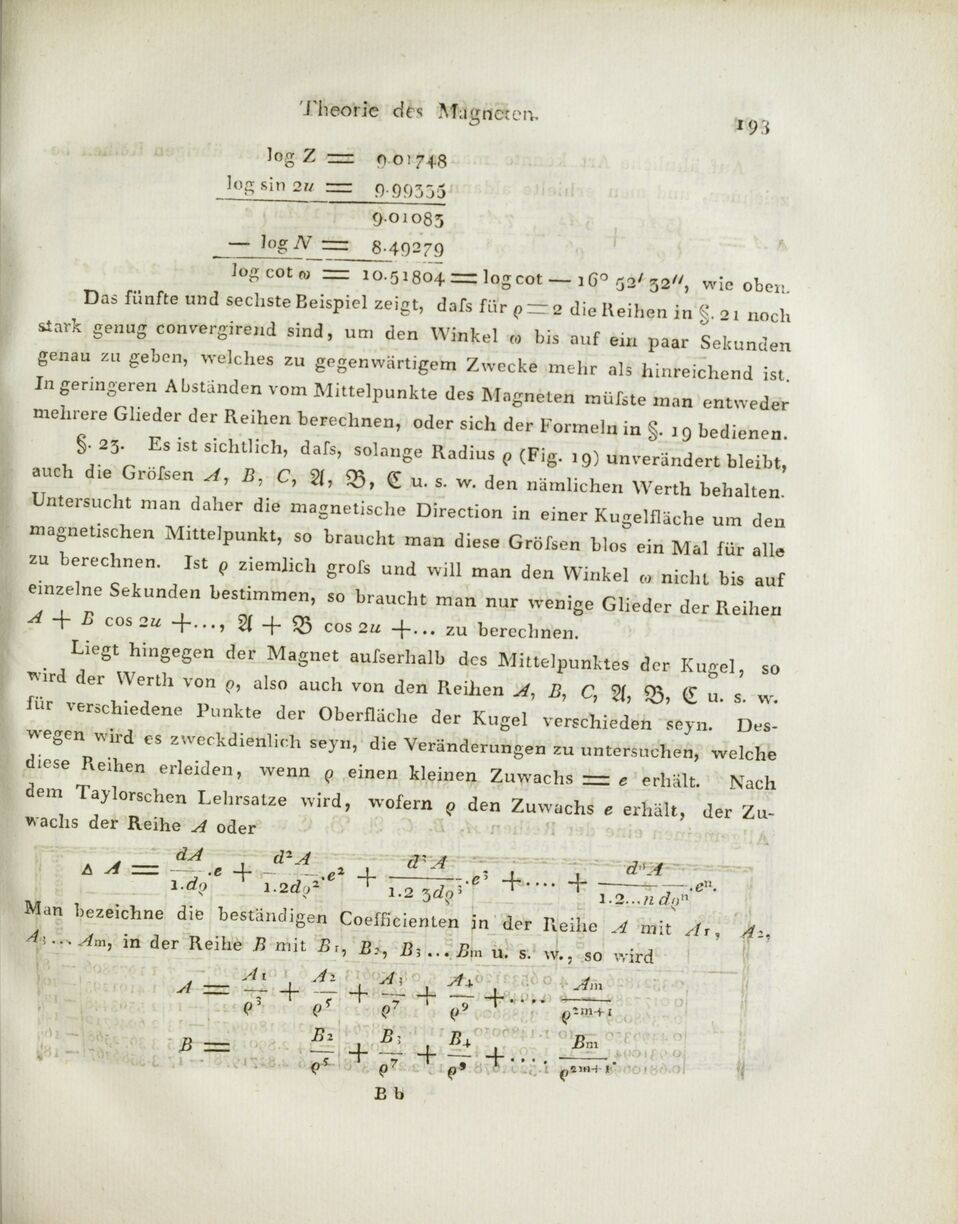 Theorie des Magneten.
193
log Z = 9.01748
log sin 2u = 9.99335
9.01083
— log N = 8.49279
log cot ω = 10.51804 = log cot — 16° 52′ 32″, wie oben.
Das fünfte und sechste Beispiel zeigt, dafs für ϱ = 2 die Reihen in §. 21 noch
stark genug convergirend sind, um den Winkel ω bis auf ein paar Sekunden
genau zu geben, welches zu gegenwärtigem Zwecke mehr als hinreichend ist.
In geringeren Abständen vom Mittelpunkte des Magneten müfste man entweder
mehrere Glieder der Reihen berechnen, oder sich der Formeln in §. 19 bedienen.
§. 23. Es ist sichtlich, dafs, solange Radius ϱ (Fig. 19) unverändert bleibt,
auch die Gröfsen A, B, C, 𝔄, 𝔅, ℭ u. s. w. den nämlichen Werth behalten.
Untersucht man daher die magnetische Direction in einer Kugelfläche um den
magnetischen Mittelpunkt, so braucht man diese Gröfsen blos ein Mal für alle
zu berechnen. Ist ϱ ziemlich grofs und will man den Winkel ω nicht bis auf
einzelne Sekunden bestimmen, so braucht man nur wenige Glieder der Reihen
A + B cos 2u + ..., 𝔄 + 𝔅 cos 2u + ... zu berechnen.
Liegt hingegen der Magnet aufserhalb des Mittelpunktes der Kugel, so
wird der Werth von ϱ, also auch von den Reihen A, B, C, 𝔄, 𝔅, ℭ u. s. w.
für verschiedene Punkte der Oberfläche der Kugel verschieden seyn. Des-
wegen wird es zweckdienlich seyn, die Veränderungen zu untersuchen, welche
diese Reihen erleiden, wenn ϱ einen kleinen Zuwachs = e erhält. Nach
dem Taylorschen Lehrsatze wird, wofern ϱ den Zuwachs e erhält, der Zu-
wachs der Reihe A oder
Δ A = dA/1.dϱ .e + d²A/1.2dϱ² .e² + d³A/1.2 3dϱ³ .e³ + .... + dⁿA/1.2...n dϱⁿ .eⁿ.
Man bezeichne die beständigen Coefficienten in der Reihe A mit A₁, A₂,
A₃ ... Am, in der Reihe B mit B₁, B₂, B₃ ... Bm u. s. w., so wird
A = A₁/ϱ³ + A₂/ϱ⁵ + A₃/ϱ⁷ + A₄/ϱ⁹ + .... Am/ϱ²ᵐ⁺¹
B = B₂/ϱ⁵ + B₃/ϱ⁷ + B₄/ϱ⁹ + .... Bm/ϱ²ᵐ⁺¹.
B b